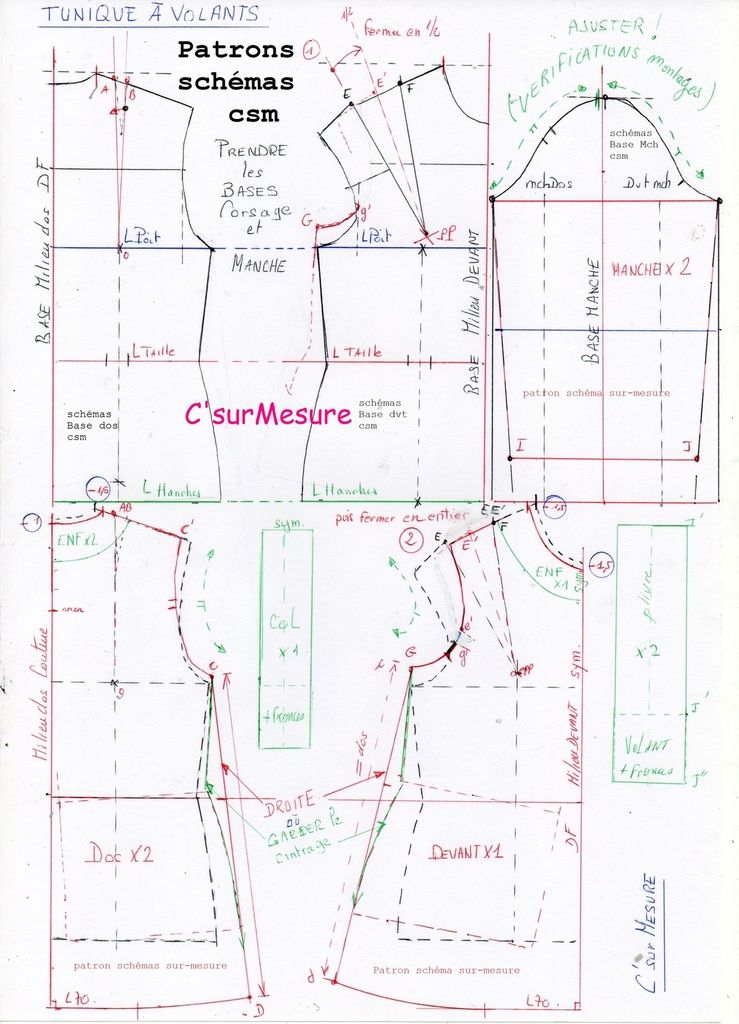 TUNIQUE À VOLANTS
Patrons
schémas
csm
PRENDRE
les
BASES
Corsage
et
MANCHE
1
1/2
fermer en 1/2
AJUSTER !
(VÉRIFICATIONS montages)
A
B
E
E'
F
G
g'
PP
L Poit
O
L Poit
BASE Milieu dos DF
BASE Milieu DEVANT
schémas
Base Mch
csm
mchDos
Dvt mch
BASE MANCHE
MANCHE X 2
patron schéma sur-mesure
I
J
L TAILLE
L TAILLE
schémas
Base dos
csm
C'surMesure
schémas
Base dvt
csm
L Hanches
L Hanches
-1
-1,5
AB
C'
ENF X 2
sym.
COL
X 1
+ fronces
puis fermer en entier
2
E
E'
EE'
F
-1,5
-1,5
ENF
X 1
sym
J'
pliure
X 2
J'
VOLANT
+ fronces
J"
Milieu dos Couture
g
C
G
i
e'
g'
PP
// dos
Milieu DEVANT
sym.
DF
DROITE
OÙ
GARDER le
cintrage
Dos X 2
DEVANT X 1
patron schémas sur-mesure
Patron schéma sur-mesure
L70.
D
d
L70.
C'sur MESURE